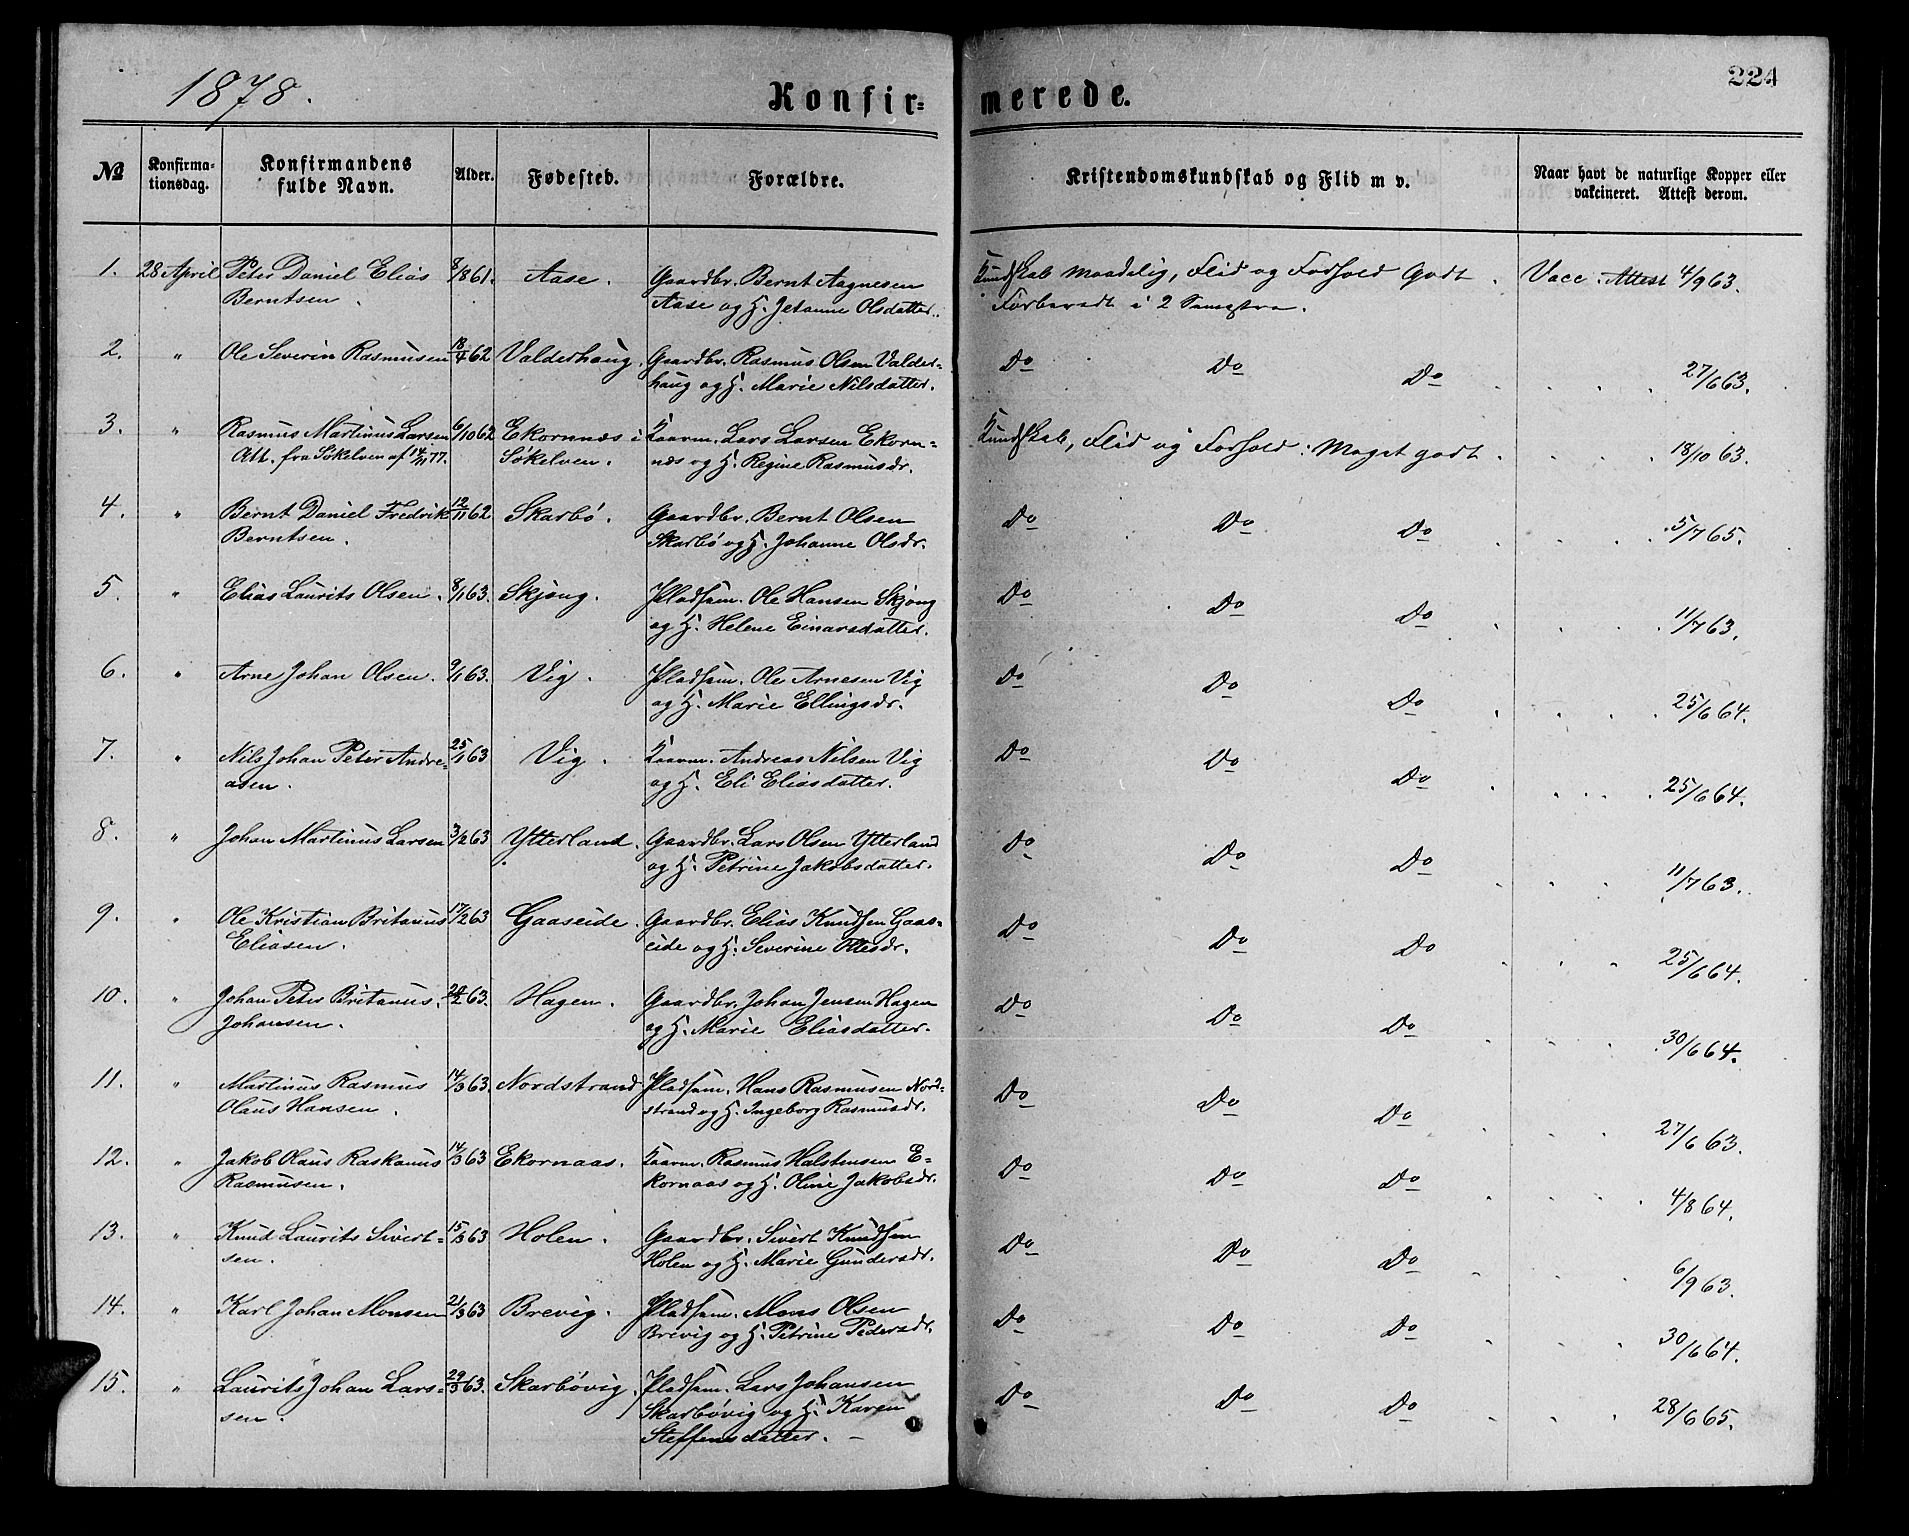 1878.
Konfir=
merede.
224
№
Konfirma-
tionsdag.
Konfirmandens
fulde Navn.
Alder.
Fødested.
Forældre.
Kristendomskundskab og Flid m v.
Naar havt de naturlige Kopper eller
vakcineret. Attest derom.
1. 28 April Peter Daniel Elias 8/8 61. Aase. Gaardbr. Bernt Aagnesen Kundskab maadelig, Flid og Forhold Godt. Vacc. Attest 4/9 63.
Berntsen. Aase og H. Jetanne Olsdatter. Forberedt i 2 Semestre.
2. " Ole Severin Rasmusen 18/4 62 Valderhaug. Gaardbr. Rasmus Olsen Valder- Do Do Do 27/6 63.
haug og H. Marie Nilsdatter.
3. " Rasmus Martinus Larsen 6/10 62 Ekornnæs i Kaarm. Lars Larsen Ekorn= Kundskab, Flid og Forhold: Meget godt. 18/10 63.
Att. fra Søkelven af 14/11 77. Søkelven. næs og H. Regine Rasmusdr.
4. " Bernt Daniel Fredrik 12/11 62 Skarbø. Gaardbr. Bernt Olsen Do Do Do 5/7 65.
Berntsen. Skarbø og H. Johanne Olsdr.
5. " Elias Laurits Olsen. 8/1 63. Skjong. Pladsm. Ole Hansen Skjong Do Do Do 11/7 63.
og H. Helene Einarsdatter.
6. " Arne Johan Olsen. 9/1 63. Vig. Pladsm. Ole Arnesen Vig Do Do Do 25/6 64.
og H. Marie Ellingsdr.
7. " Nils Johan Peter Andre= 25/1 63 Vig. Kaarm. Andreas Nilsen Vig Do Do Do 25/6 64.
asen. og H. Eli Eliasdatter.
8. " Johan Martinus Larsen 3/2 63 Ytterland. Gaardbr. Lars Olsen Ytterland Do Do Do 11/7 63.
og H. Petrine Jakobsdatter.
9. " Ole Kristian Britanus 17/2 63 Gaaseide. Gaardbr. Elias Knudsen Gaas= Do Do Do 25/6 64.
Eliasen. eide og H. Severine Ottesdr.
10. " Johan Peter Britanus. /2 63. Hagen. Gaardbr. Johan Jensen Hagen Do Do Do 30/6 64.
Johansen. og H. Marie Eliasdatter.
11. " Martinus Rasmus 14/3 63 Nordstrand Pladsm. Hans Rasmusen Nord= Do Do Do 27/6 63.
Olaus Hansen. strand og H. Ingeborg Rasmusdr.
12. " Jakob Olaus Raskanus 14/3 63 Ekornaas. Kaarm. Rasmus Halstensen E= Do Do Do 4/8 64.
Rasmusen. kornaas og H. Oline Jakobsdr.
13. " Knud Laurits Sivert= 15/3 63 Holen. Gaardbr. Sivert Knudsen Do Do Do 6/9 63.
sen. Holen og H. Marie Gundersdr.
14. " Karl Johan Monsen 21/3 63 Brevig. Pladsm. Mons Olsen Do Do Do 30/6 64.
Brevig og H. Petrine Pedersdr.
15. " Laurits Johan Lars= 29/3 63. Skarbøvig. Pladsm. Lars Johansen Do Do Do 28/6 65.
sen. Skarbøvig og H. Karen
Steffensdatter. –